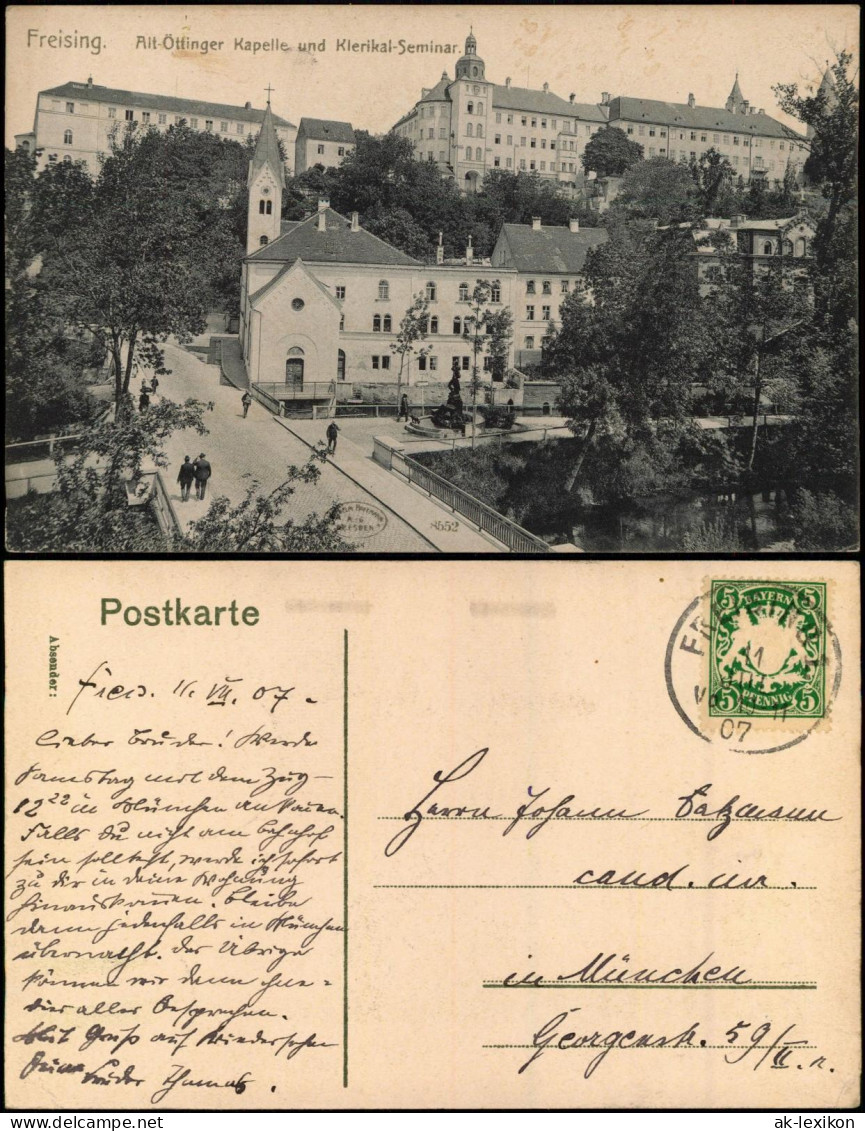 Freising. Alt-Öttinger Kapelle und Klerikal-Seminar.
8552
Postkarte
Absender:
BAYERN
5 5
5 5
PFENNIG
FREISING
11
07
Freis. 11. VII. 07.
Lieber Bruder! Werde
Samstag mit dem Zug
12 22 in München ankommen.
Falls du nicht am Bahnhof
sein solltest, werde ich sofort
zu dir in deine Wohnung
hinauskommen. Bleibe
dann jedenfalls in München
übernacht. Das Übrige
können wir dann
alles besprechen.
Mit Gruß auf Wiedersehen
Bruder Thomas.
Herrn Johann Salzmann
cand. iur.
in München
Georgenstr. 59/II. r.
ak-lexikon